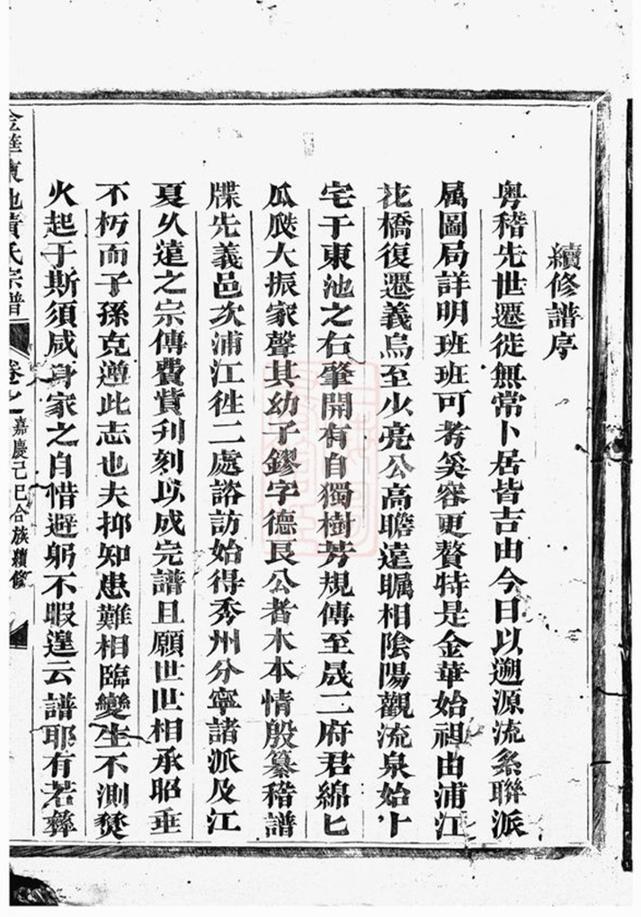 續修譜序
粤稽先世遷徙無常卜居皆吉由今日以遡源流糸聯派
属圖局詳明班班可考奚容更贅特是金華始祖由浦江
花橋復遷義烏至少亮公高瞻遠矚相陰陽觀流泉始卜
宅于東池之右肇開有自獨樹芳規傳至晟二府君綿匕
瓜瓞大振家聲其幼子鏐字德良公者木本情殷纂稽譜
牒先義邑次浦江徃二處諮訪始得秀州分寧諸派及江
夏久遠之宗傳費貲刋刻以成完譜且願世世相承昭垂
不朽而子孫克遵此志也夫抑知患難相臨變生不測焚
火起于斯須咸身家之自惜避躬不暇遑云譜耶有若彜
金華東池黃氏宗譜
卷之
嘉慶己巳合族續修